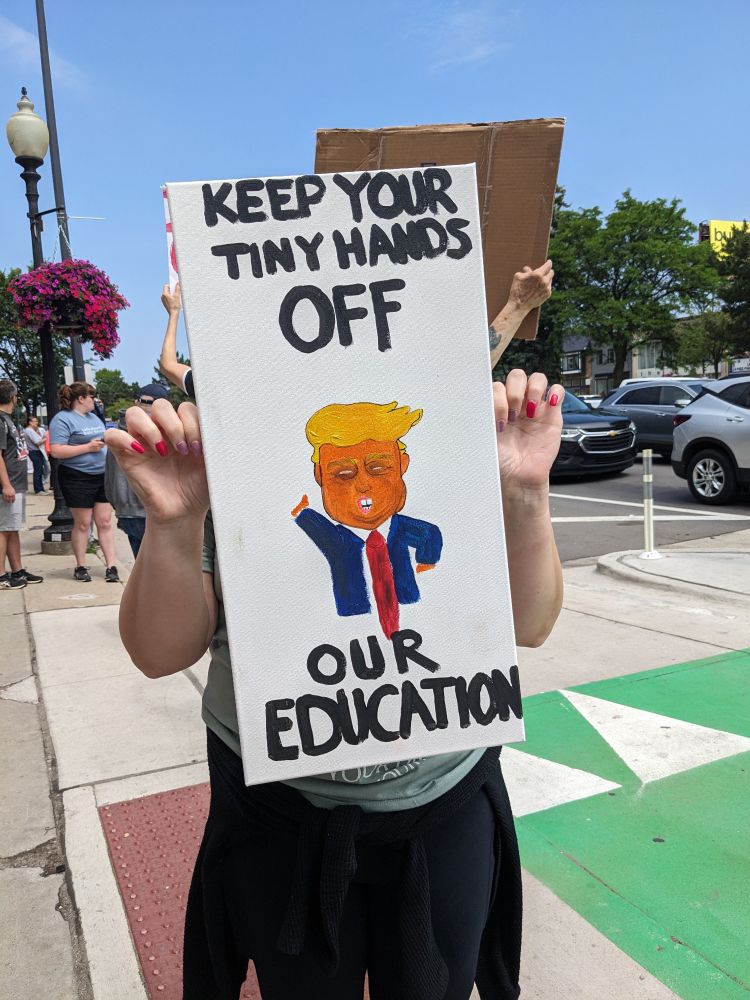 KEEP YOUR
TINY HANDS
OFF
OUR
EDUCATION